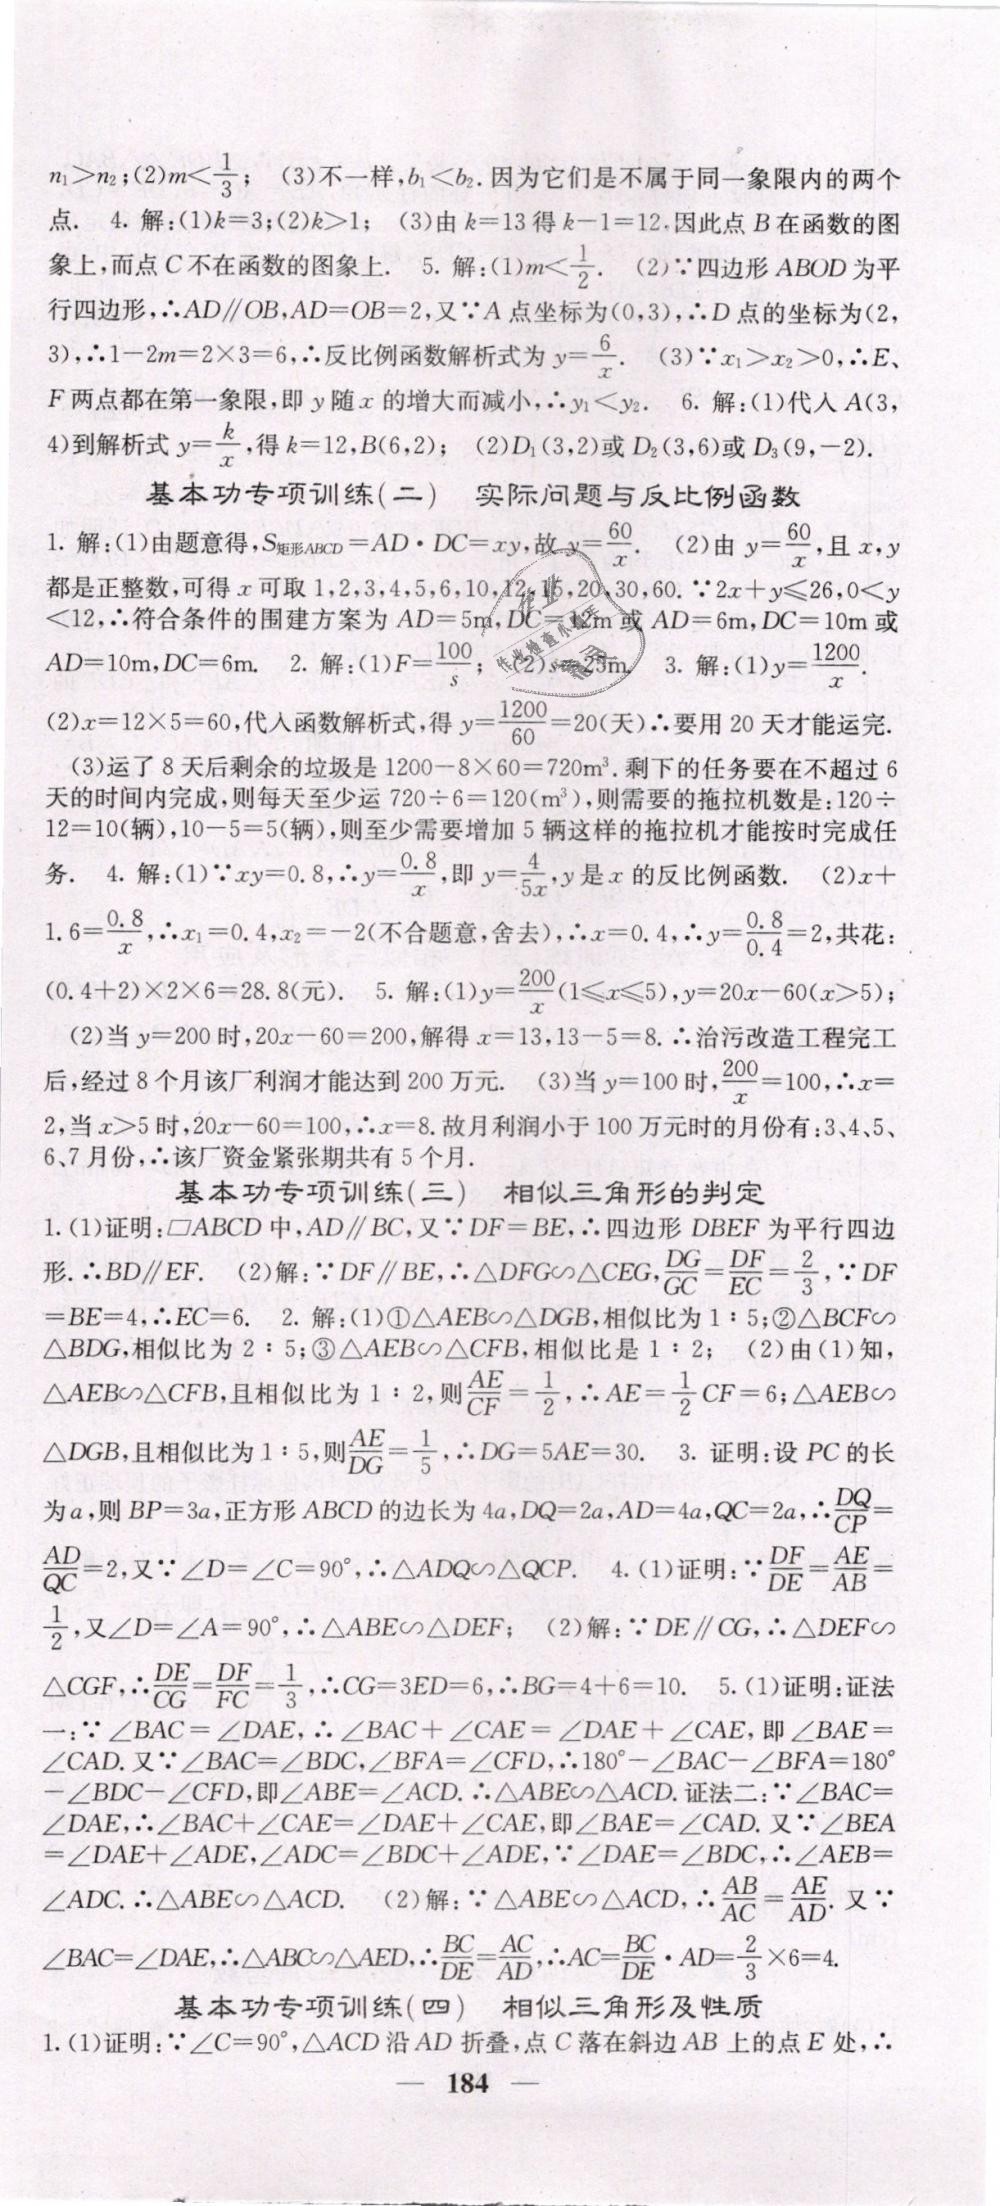 n₁>n₂;(2)m<1/3; (3)不一样,b₁<b₂.因为它们是不属于同一象限内的两个
点. 4. 解:(1)k=3;(2)k>1; (3)由k=13得k-1=12,因此点B在函数的图
象上,而点C不在函数的图象上. 5. 解:(1)m<1/2. (2)∵四边形ABOD为平
行四边形,∴AD∥OB,AD=OB=2,又∵A点坐标为(0,3),∴D点的坐标为(2,
3),∴1-2m=2×3=6,∴反比例函数解析式为y=6/x. (3)∵x₁>x₂>0,∴E、
F两点都在第一象限,即y随x的增大而减小,∴y₁<y₂. 6. 解:(1)代入A(3,
4)到解析式y=k/x,得k=12,B(6,2); (2)D₁(3,2)或D₂(3,6)或D₃(9,-2).
基本功专项训练(二) 实际问题与反比例函数
1. 解:(1)由题意得,S矩形ABCD=AD·DC=xy,故y=60/x. (2)由y=60/x,且x,y
都是正整数,可得x可取1,2,3,4,5,6,10,12,15,20,30,60.∵2x+y≤26,0<y
<12,∴符合条件的围建方案为AD=5m,DC=12m或AD=6m,DC=10m或
AD=10m,DC=6m. 2. 解:(1)F=100/s; (2)s=25m. 3. 解:(1)y=1200/x.
(2)x=12×5=60,代入函数解析式,得y=1200/60=20(天)∴要用20天才能运完.
(3)运了8天后剩余的垃圾是1200-8×60=720m³.剩下的任务要在不超过6
天的时间内完成,则每天至少运720÷6=120(m³),则需要的拖拉机数是:120÷
12=10(辆),10-5=5(辆),则至少需要增加5辆这样的拖拉机才能按时完成任
务. 4. 解:(1)∵xy=0.8,∴y=0.8/x,即y=4/5x,y是x的反比例函数. (2)x+
1.6=0.8/x,∴x₁=0.4,x₂=-2(不合题意,舍去),∴x=0.4,∴y=0.8/0.4=2,共花:
(0.4+2)×2×6=28.8(元). 5. 解:(1)y=200/x(1≤x≤5),y=20x-60(x>5);
(2)当y=200时,20x-60=200,解得x=13,13-5=8.∴治污改造工程完工
后,经过8个月该厂利润才能达到200万元. (3)当y=100时,200/x=100,∴x=
2,当x>5时,20x-60=100,∴x=8.故月利润小于100万元时的月份有:3、4、5、
6、7月份,∴该厂资金紧张期共有5个月.
基本功专项训练(三) 相似三角形的判定
1.(1)证明:□ABCD中,AD∥BC,又∵DF=BE,∴四边形DBEF为平行四边
形.∴BD∥EF. (2)解:∵DF∥BE,∴△DFG∽△CEG,DG/GC=DF/EC=2/3,∵DF
=BE=4,∴EC=6. 2. 解:(1)①△AEB∽△DGB,相似比为1∶5;②△BCF∽
△BDG,相似比为2∶5;③△AEB∽△CFB,相似比是1∶2; (2)由(1)知,
△AEB∽△CFB,且相似比为1∶2,则AE/CF=1/2,∴AE=1/2CF=6;△AEB∽
△DGB,且相似比为1∶5,则AE/DG=1/5,∴DG=5AE=30. 3. 证明:设PC的长
为a,则BP=3a,正方形ABCD的边长为4a,DQ=2a,AD=4a,QC=2a,∴DQ/CP=
AD/QC=2,又∵∠D=∠C=90°,∴△ADQ∽△QCP. 4.(1)证明:∵DF/DE=AE/AB=
1/2,又∠D=∠A=90°,∴△ABE∽△DEF; (2)解:∵DE∥CG,∴△DEF∽
△CGF,∴DE/CG=DF/FC=1/3,∴CG=3ED=6,∴BG=4+6=10. 5.(1)证明:证法
一:∵∠BAC=∠DAE,∴∠BAC+∠CAE=∠DAE+∠CAE,即∠BAE=
∠CAD.又∵∠BAC=∠BDC,∠BFA=∠CFD,∴180°-∠BAC-∠BFA=180°
-∠BDC-∠CFD,即∠ABE=∠ACD.∴△ABE∽△ACD.证法二:∵∠BAC=
∠DAE,∴∠BAC+∠CAE=∠DAE+∠CAE,即∠BAE=∠CAD.又∵∠BEA
=∠DAE+∠ADE,∠ADC=∠BDC+∠ADE,∵∠DAE=∠BDC,∴∠AEB=
∠ADC.∴△ABE∽△ACD. (2)解:∵△ABE∽△ACD,∴AB/AC=AE/AD.又∵
∠BAC=∠DAE,∴△ABC∽△AED,∴BC/DE=AC/AD,∴AC=BC/DE·AD=2/3×6=4.
基本功专项训练(四) 相似三角形及性质
1.(1)证明:∵∠C=90°,△ACD沿AD折叠,点C落在斜边AB上的点E处,∴
— 184 —